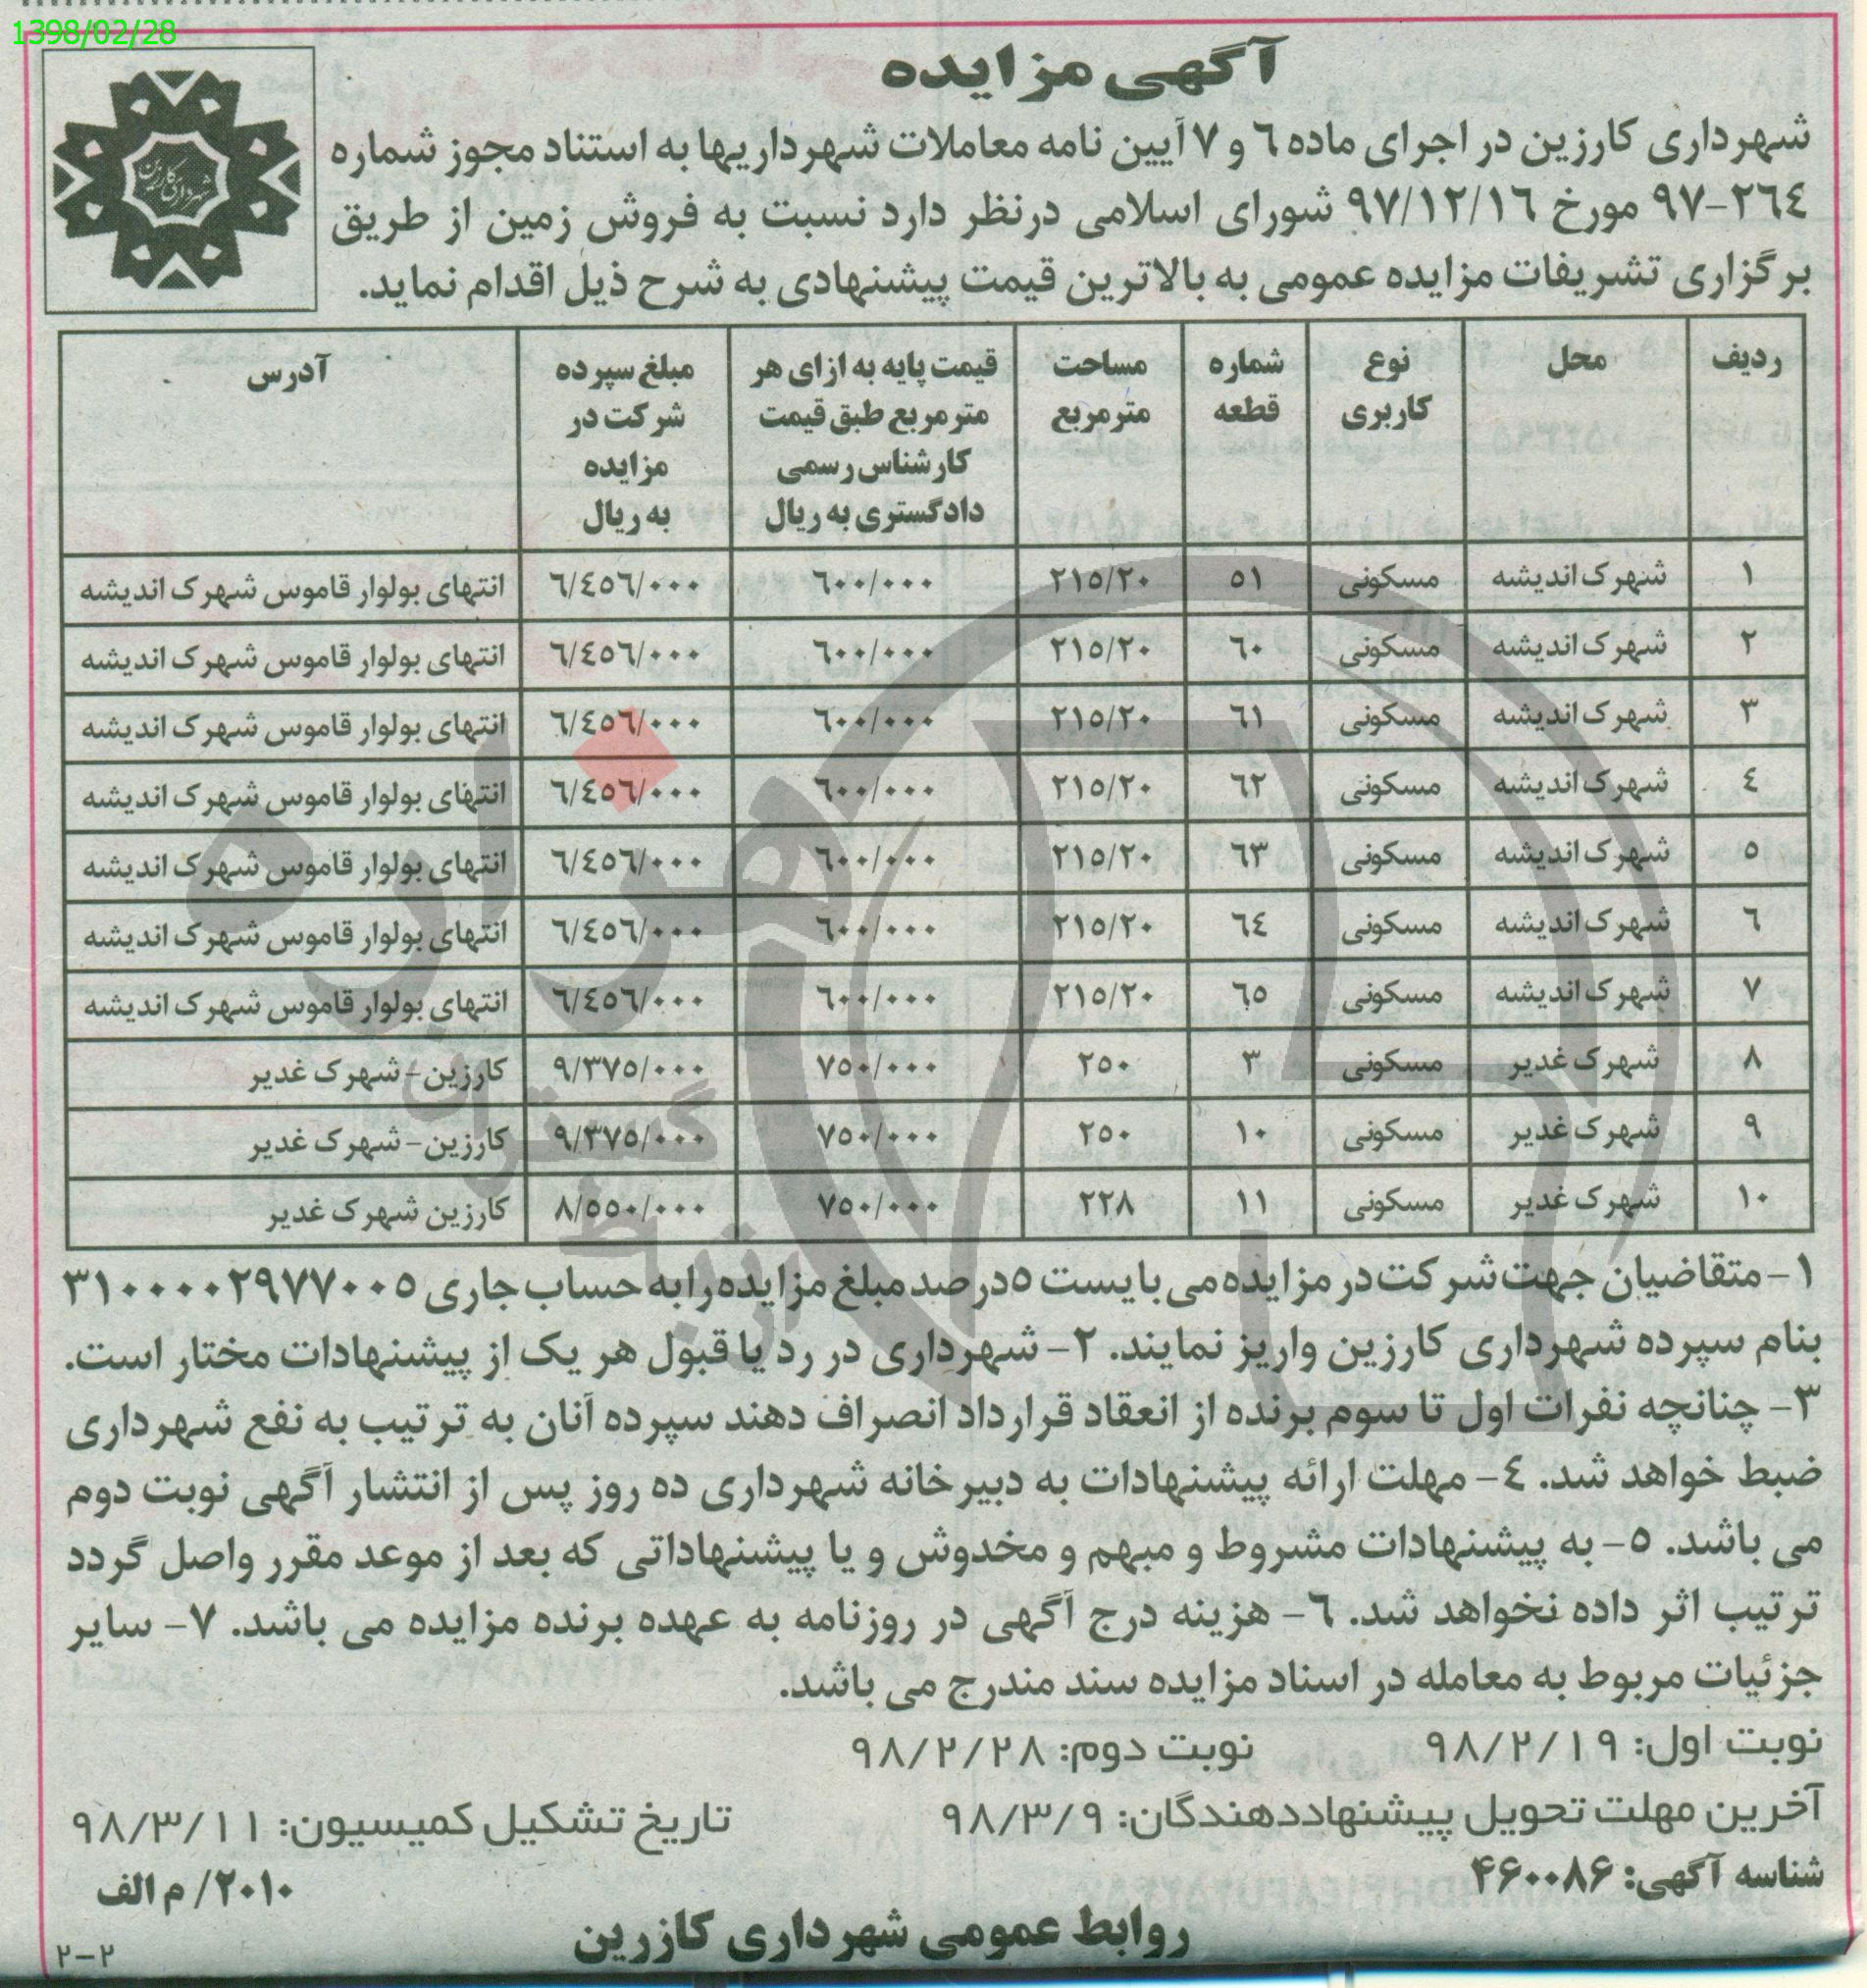 1398/02/28
آگهی مزایده
شهرداری کارزین
شهرداری کارزین در اجرای ماده ٦ و ٧ آیین نامه معاملات شهرداریها به استناد مجوز شماره
٢٦٤-٩٧ مورخ ٩٧/١٢/١٦ شورای اسلامی درنظر دارد نسبت به فروش زمین از طریق
برگزاری تشریفات مزایده عمومی به بالاترین قیمت پیشنهادی به شرح ذیل اقدام نماید.
ردیف | محل | نوع کاربری | شماره قطعه | مساحت مترمربع | قیمت پایه به ازای هر مترمربع طبق قیمت کارشناس رسمی دادگستری به ریال | مبلغ سپرده شرکت در مزایده به ریال | آدرس
١ | شهرک اندیشه | مسکونی | ٥١ | ٢١٥/٢٠ | ٦٠٠/٠٠٠ | ٦/٤٥٦/٠٠٠ | انتهای بولوار قاموس شهرک اندیشه
٢ | شهرک اندیشه | مسکونی | ٦٠ | ٢١٥/٢٠ | ٦٠٠/٠٠٠ | ٦/٤٥٦/٠٠٠ | انتهای بولوار قاموس شهرک اندیشه
٣ | شهرک اندیشه | مسکونی | ٦١ | ٢١٥/٢٠ | ٦٠٠/٠٠٠ | ٦/٤٥٦/٠٠٠ | انتهای بولوار قاموس شهرک اندیشه
٤ | شهرک اندیشه | مسکونی | ٦٢ | ٢١٥/٢٠ | ٦٠٠/٠٠٠ | ٦/٤٥٦/٠٠٠ | انتهای بولوار قاموس شهرک اندیشه
٥ | شهرک اندیشه | مسکونی | ٦٣ | ٢١٥/٢٠ | ٦٠٠/٠٠٠ | ٦/٤٥٦/٠٠٠ | انتهای بولوار قاموس شهرک اندیشه
٦ | شهرک اندیشه | مسکونی | ٦٤ | ٢١٥/٢٠ | ٦٠٠/٠٠٠ | ٦/٤٥٦/٠٠٠ | انتهای بولوار قاموس شهرک اندیشه
٧ | شهرک اندیشه | مسکونی | ٦٥ | ٢١٥/٢٠ | ٦٠٠/٠٠٠ | ٦/٤٥٦/٠٠٠ | انتهای بولوار قاموس شهرک اندیشه
٨ | شهرک غدیر | مسکونی | ٣ | ٢٥٠ | ٧٥٠/٠٠٠ | ٩/٣٧٥/٠٠٠ | کارزین-شهرک غدیر
٩ | شهرک غدیر | مسکونی | ١٠ | ٢٥٠ | ٧٥٠/٠٠٠ | ٩/٣٧٥/٠٠٠ | کارزین-شهرک غدیر
١٠ | شهرک غدیر | مسکونی | ١١ | ٢٢٨ | ٧٥٠/٠٠٠ | ٨/٥٥٠/٠٠٠ | کارزین شهرک غدیر
١- متقاضیان جهت شرکت در مزایده می بایست ٥درصد مبلغ مزایده را به حساب جاری ٣١٠٠٠٠٠٢٩٧٧٠٠٥
بنام سپرده شهرداری کارزین واریز نمایند. ٢- شهرداری در رد یا قبول هر یک از پیشنهادات مختار است.
٣- چنانچه نفرات اول تا سوم برنده از انعقاد قرارداد انصراف دهند سپرده آنان به ترتیب به نفع شهرداری
ضبط خواهد شد. ٤- مهلت ارائه پیشنهادات به دبیرخانه شهرداری ده روز پس از انتشار آگهی نوبت دوم
می باشد. ٥- به پیشنهادات مشروط و مبهم و مخدوش و یا پیشنهاداتی که بعد از موعد مقرر واصل گردد
ترتیب اثر داده نخواهد شد. ٦- هزینه درج آگهی در روزنامه به عهده برنده مزایده می باشد. ٧- سایر
جزئیات مربوط به معامله در اسناد مزایده سند مندرج می باشد.
نوبت اول: ٩٨/٢/١٩ نوبت دوم: ٩٨/٢/٢٨
آخرین مهلت تحویل پیشنهاددهندگان: ٩٨/٣/٩ تاریخ تشکیل کمیسیون: ٩٨/٣/١١
شناسه آگهی: ۴۶۰۰۸۶ ٢٠١٠/ م الف
روابط عمومی شهرداری کازرین
٢-٢